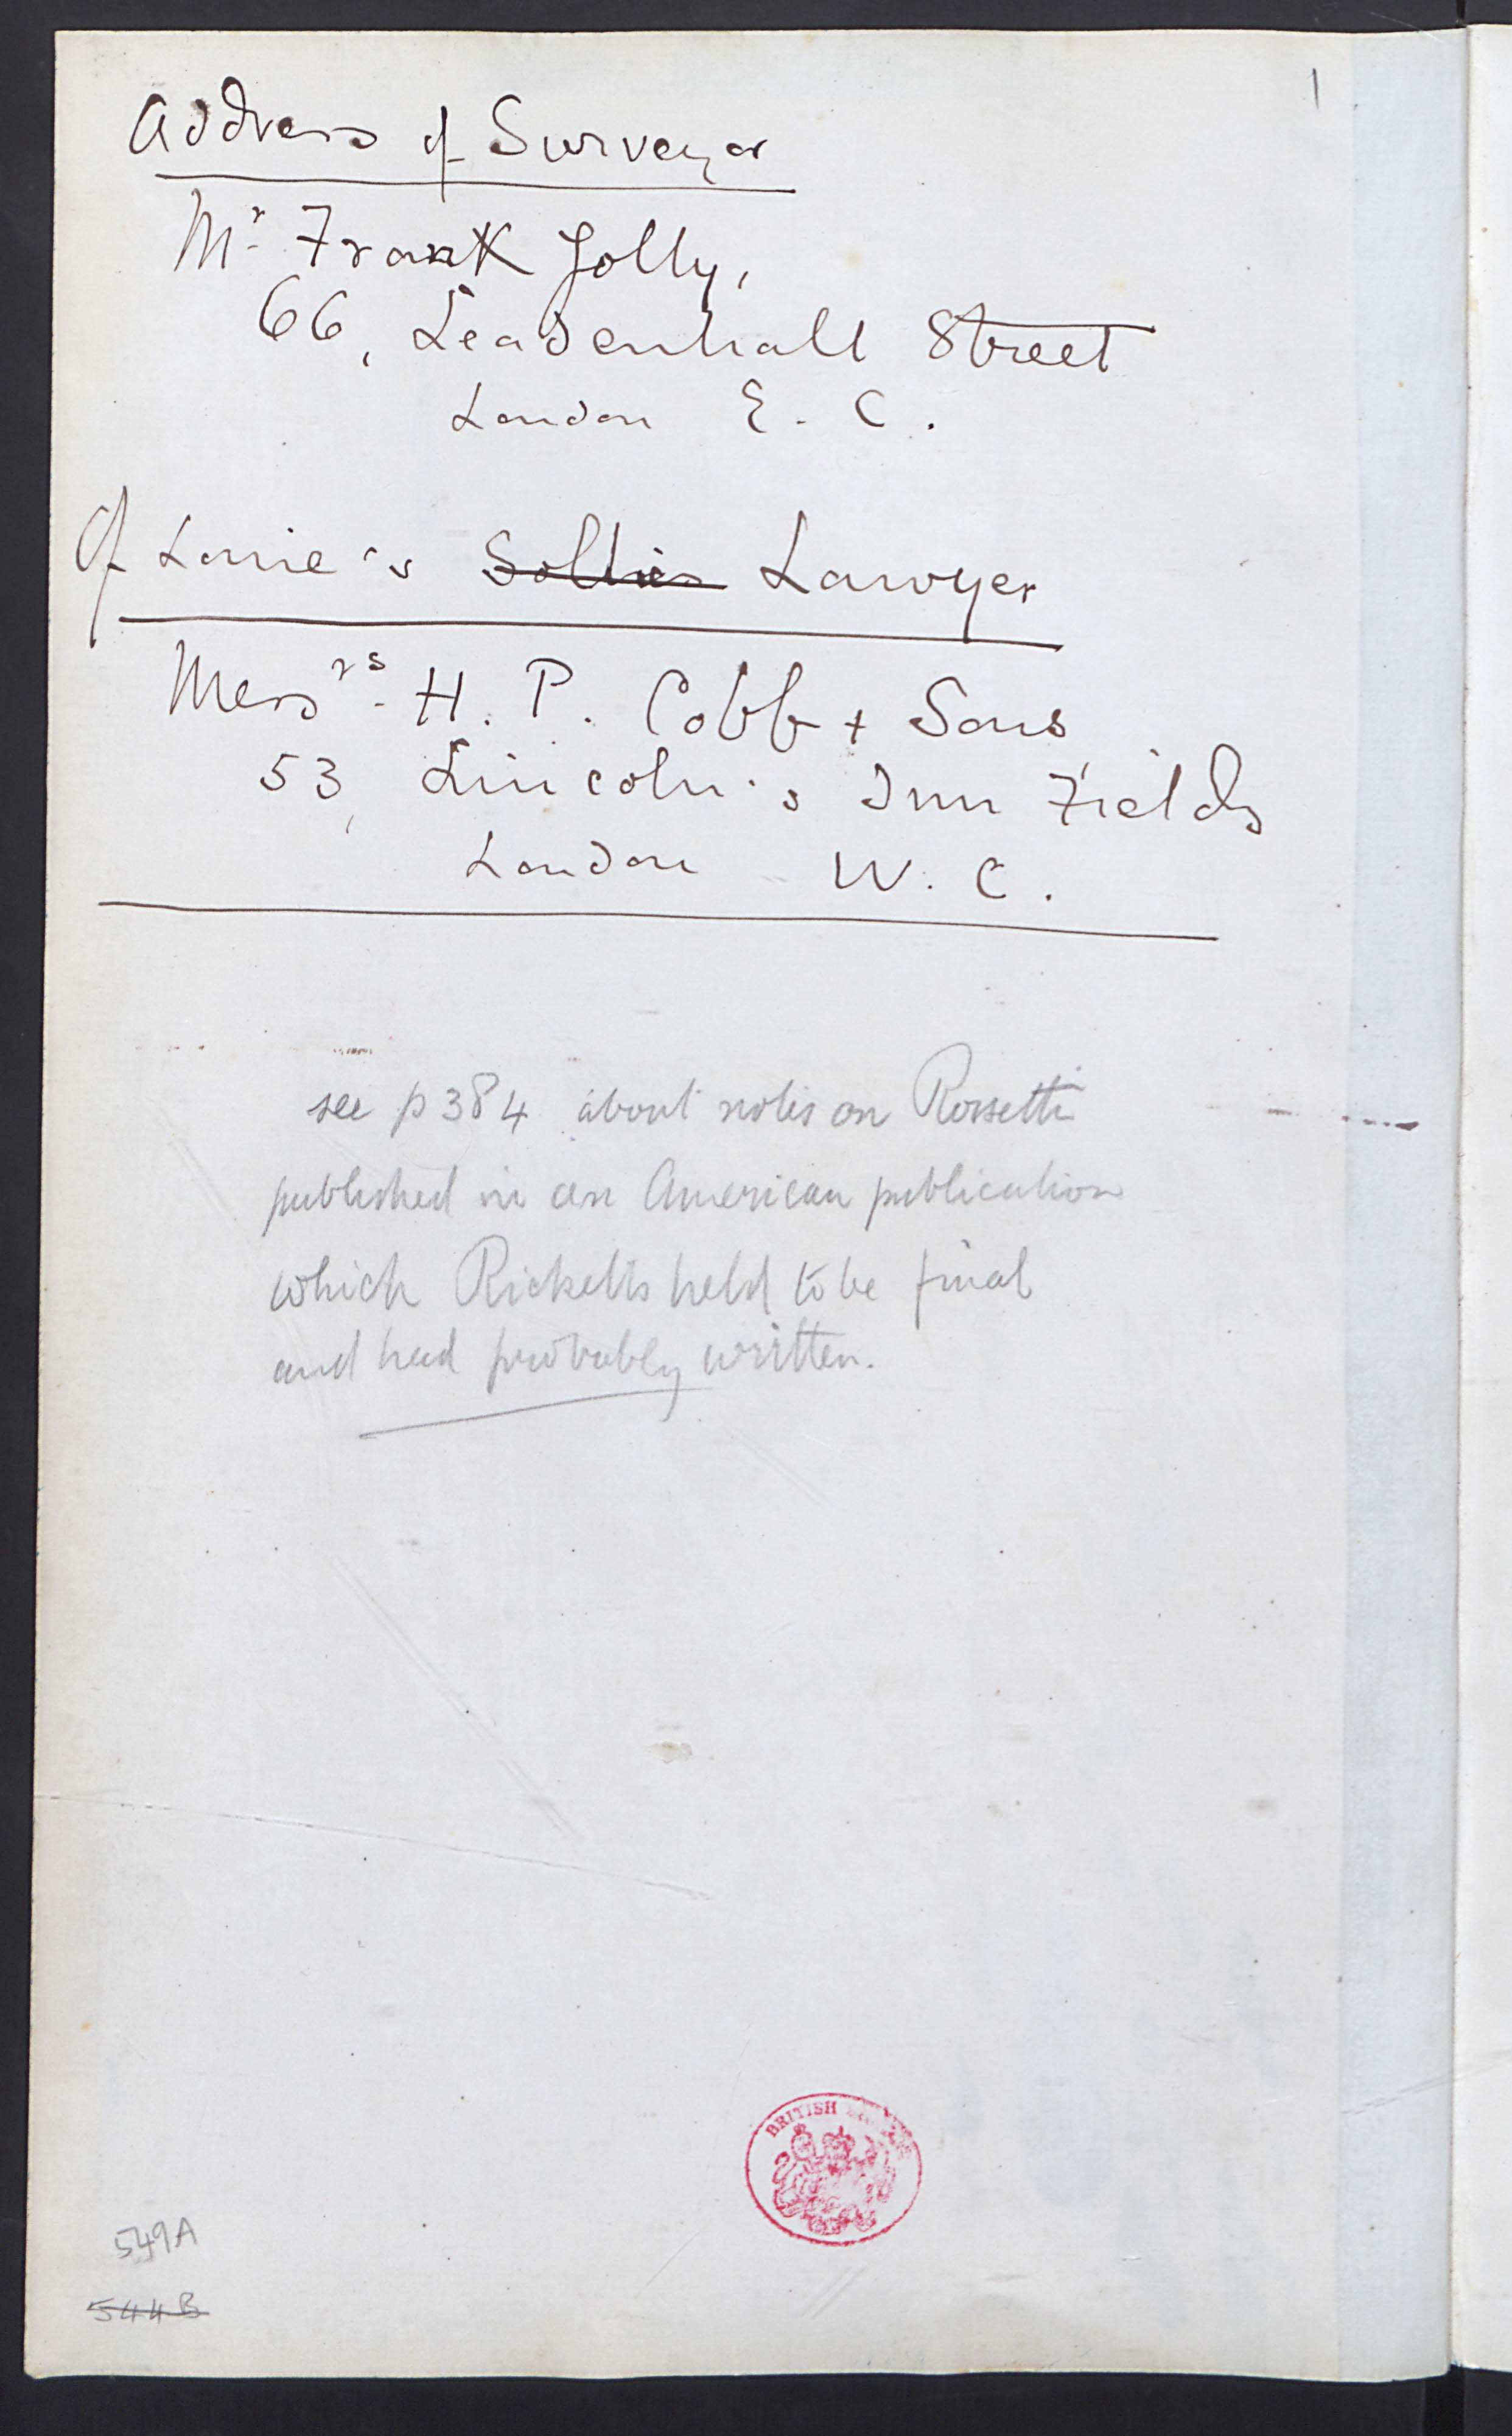 1
Address of Surveyor
Mr. Frank Jolly,
66, Leadenhall Street
London E. C.
Of Lorie's Lawyer
Messrs. H. P. Cobb + Sons
53, Lincoln's Inn Fields
London W. C.
see p 384 about notes on Rossetti
published in an American publication
which Ricketts held to be final
and had probably written.
BRITISH
549A
544B